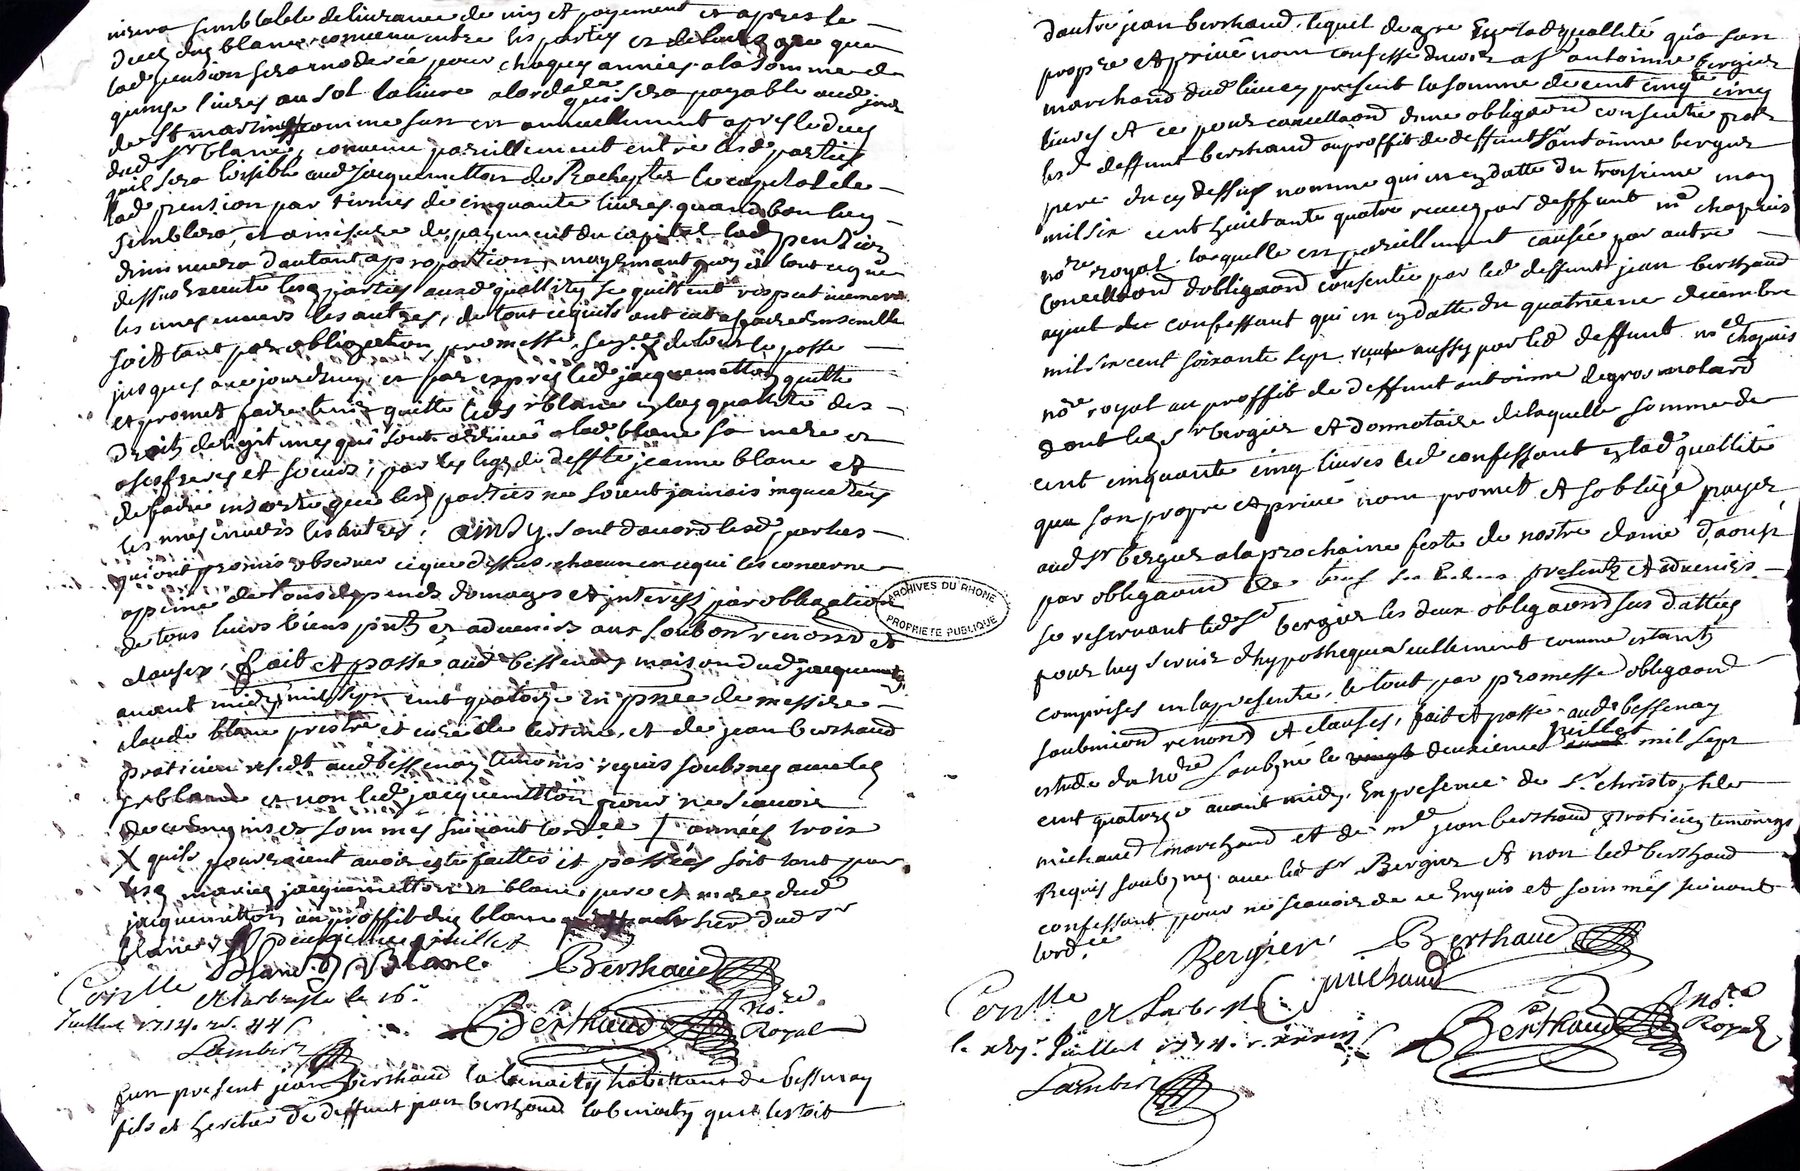 sera semblable delivrance de vin et payement et apres le
deces dud blanc convenu entre les parties que
lad pension sera moderée pour chaques années a la somme de
quinse livres au sol la livre sera payable aud jour
de St martin comme sus est annuellement apres le deces
dud Sr blanc, convenu pareillement entre lesd parties
quil sera loisible aud jacquemetton de Rachepter le capital de
lad pension par termes de cinquante livres quand bon luy
semblera, et a mesure du payement du capital lad pention
diminuera dautant a proportion, moyennant quoy et tout ce que
dessus execute lesd parties ausd quallités se quittent respectivement
les unes envers les autres, de tout ce quils ont eu a faire ensemble
soit tant par obligation promesse X de tout le passé
jusques a ce jourdhuy et par exprés led jacquemetton quitte
et promet faire tenir quitte led sr blanc esd quallité des
droits de legitimes qui sont arrivé a lad blanc sa mere et
a ses freres et soeurs, par les legs de deffte jeanne blanc et
de faire en sorte que lesd parties ne soient jamais inquietées
les unes envers les autres. Ainsy sont daccord lesd parties
qui ont promis observer ce que dessus chacun en ce qui les concerne
a peine de tous depends domages et interests par obligation
de tous leurs biens pnts et advenirs aux soubon renond et
clauses, fait et passé aud bessenay maison dud jacquemetton
avant midy mil sept cent quatorze en pnce de messire
claude blanc prestre et curé de et de jean berthaud
praticien residt aud bessenay temoins requis soubsnés avec led
sr blanc et non led jacquemetton pour ne scavoir
de ce enquis et sommés suivant lordce / années trois
X quils pourroient avoir estre faittes et passées soit tant par
lesd mariez jacquemetton et blanc, pere et mere dud
jacquemetton au proffit dud blanc dud sr
blanc / deuxieme juillet
Blanc Blanc Berthaud
Conlle
et Larbresle le 16e
Juillet 1714. r. 44 s
Lambert
Berthaud nore Royal
Fut present jean berthaud labenaity habittant de bessenay
fils et heritier de deffunt jean berthaud labenaity qui lestoit
ARCHIVES DU RHONE
PROPRIETE PUBLIQUE
dautre jean berthaud, lequel de gre esd lad quallité qua son
propre et privé nom confesse devoir a sr antoinne bergier
marchand dud lieu present la somme de cent cinqte cinq
livres et ce pour cancellaond dune obligaond consentie par
led deffunt berthaud au proffit de deffunt Sr antoinne bergier
pere du cy dessus nommé qui en en datte du troisieme may
mil six cent huictante quatre receu par deffunt me chapuis
nore royal, laquelle est pareillement causée par autre
cancellaond dobligaond consentie par led deffunt jean berthaud
ayeul du confessant qui en en datte du quatrieme decembre
mil six cent soixante sept receue aussy par led deffunt me chapuis
nore royal au proffit de deffunt antoinne degrosmolard
dont led sr bergier et donnotaire de laquelle somme de
cent cinquante cinq livres led confessant esd lad quallité
qua son propre et privé nom promet et soblige payer
aud sr bergier a la prochaine feste de nostre dame d'aoust
par obligaond de tous ses biens presents et advenirs
se reservant led sr bergier les deux obligaond sus dattées
pour luy servir dhypotheque seullement comme estants
comprises en la presente, le tout par promesse obligaond
soubmiond renond et clauses, fait et passé aud bessenay
estude du nore soubsné le deuxieme juillet mil sept
cent quatorze avant midy, En presence de sr christophle
michaud marchand et de me jean berthaud praticien temoings
Requis soubsnés avec led sr Bergier et non led berthaud
confessant pour ne scavoir de ce Enquis et sommés suivant
lordce
Bergier Berthaud
michaud
Conlle et Larbresle
le Juillet 1714. r.
Lambert
Berthaud nore Royal